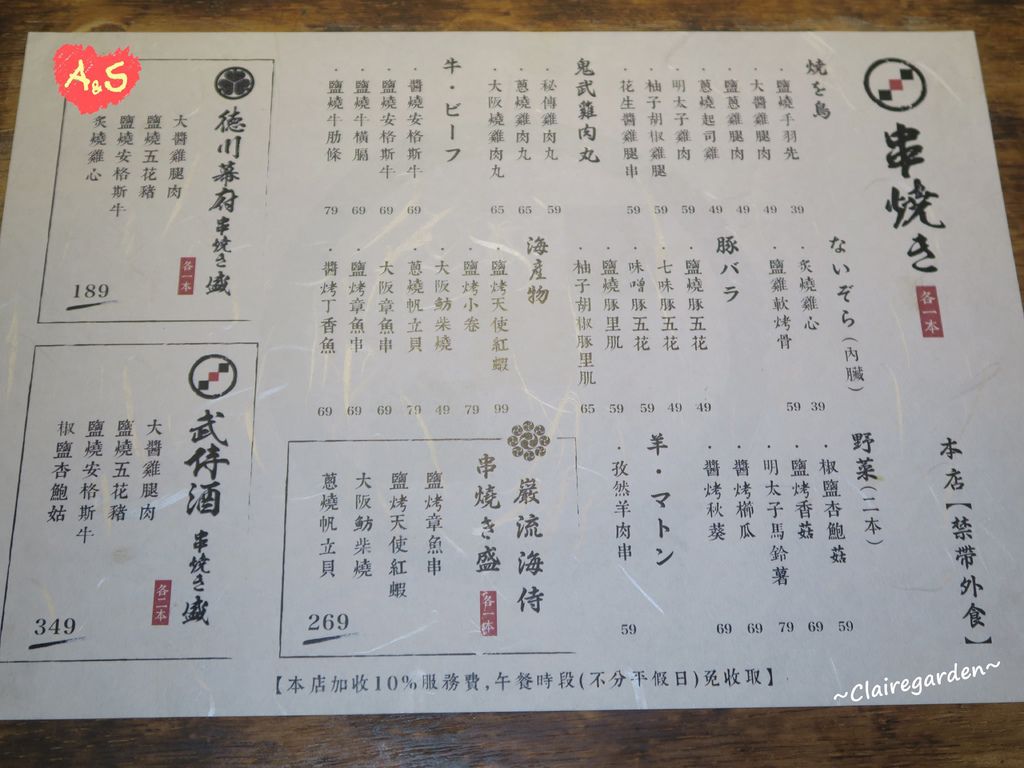 串焼き 各一本
本店【禁帶外食】
焼き鳥
・鹽燒手羽先 39
・大醬雞腿肉 49
・鹽蔥雞腿肉 49
・蔥燒起司雞 49
・明太子雞肉 59
・柚子胡椒雞腿 59
・花生醬雞腿串 59
鬼武雞肉丸
・秘傳雞肉丸 59
・蔥燒雞肉丸 65
・大阪燒雞肉丸 65
牛・ビーフ
・醬燒安格斯牛 69
・鹽燒安格斯牛 69
・鹽燒牛橫膈 69
・鹽燒牛肋條 79
ないぞう(內臟)
・炙燒雞心 39
・鹽雞軟烤骨 59
豚バラ
・鹽燒豚五花 49
・七味豚五花 49
・味噌豚五花 59
・鹽燒豚里肌 59
・柚子胡椒豚里肌 65
海産物
・鹽烤天使紅蝦 99
・鹽烤小卷 79
・大阪魴柴燒 49
・蔥燒帆立貝 79
・大阪章魚串 69
・鹽烤章魚串 69
・醬烤丁香魚 69
野菜(二本)
・椒鹽杏鮑菇 59
・鹽烤香菇 69
・明太子馬鈴薯 79
・醬烤櫛瓜 69
・醬烤秋葵 69
羊・マトン
・孜然羊肉串 59
巌流海侍
串燒き盛 各一本
鹽烤章魚串
鹽烤天使紅蝦
大阪魴柴燒
蔥燒帆立貝
269
徳川幕府串焼き盛 各一本
大醬雞腿肉
鹽燒五花豬
鹽燒安格斯牛
炙燒雞心
189
武侍酒 串焼き盛 各二本
大醬雞腿肉
鹽燒五花豬
鹽燒安格斯牛
椒鹽杏鮑菇
349
【本店加收10%服務費,午餐時段(不分平假日)免收取】
A&S
~Clairegarden~